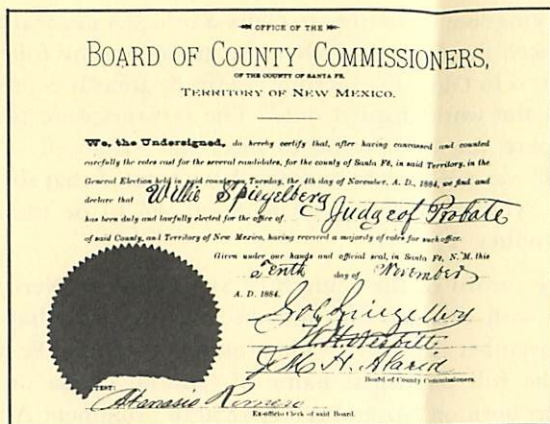 OFFICE OF THE
BOARD OF COUNTY COMMISSIONERS,
OF THE COUNTY OF SANTA FE,
TERRITORY OF NEW MEXICO.
We, the Undersigned, do hereby certify that, after having canvassed and counted
carefully the votes cast for the several candidates, for the county of Santa Fé, in said Territory, in the
General Election held in said county on Tuesday, the 4th day of November, A. D., 1884, we find and
declare that Willie Spiegelberg Judge of Probate
has been duly and lawfully elected for the office of
of said County, and Territory of New Mexico, having received a majority of votes for such office.
Given under our hands and official seal, in Santa Fé, N. M. this
Tenth day of November
A. D. 1884.
Sol Spiegelberg
H. Nesbitt
J M H. Alarid
Board of County Commissioners.
ATTEST:
Atanasio Romero
Ex-officio Clerk of said Board.